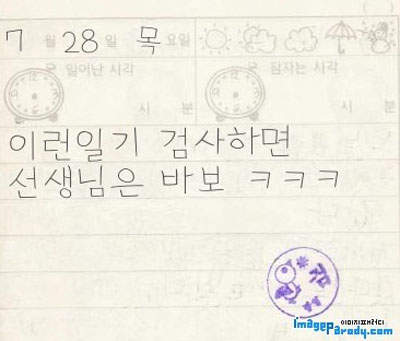 7 월 28 일 목 요일
일어난 시각 잠자는 시각
시 분 시 분
이런일기 검사하면
선생님은 바보 ㅋㅋㅋ
이미지패러디
imageparody.com